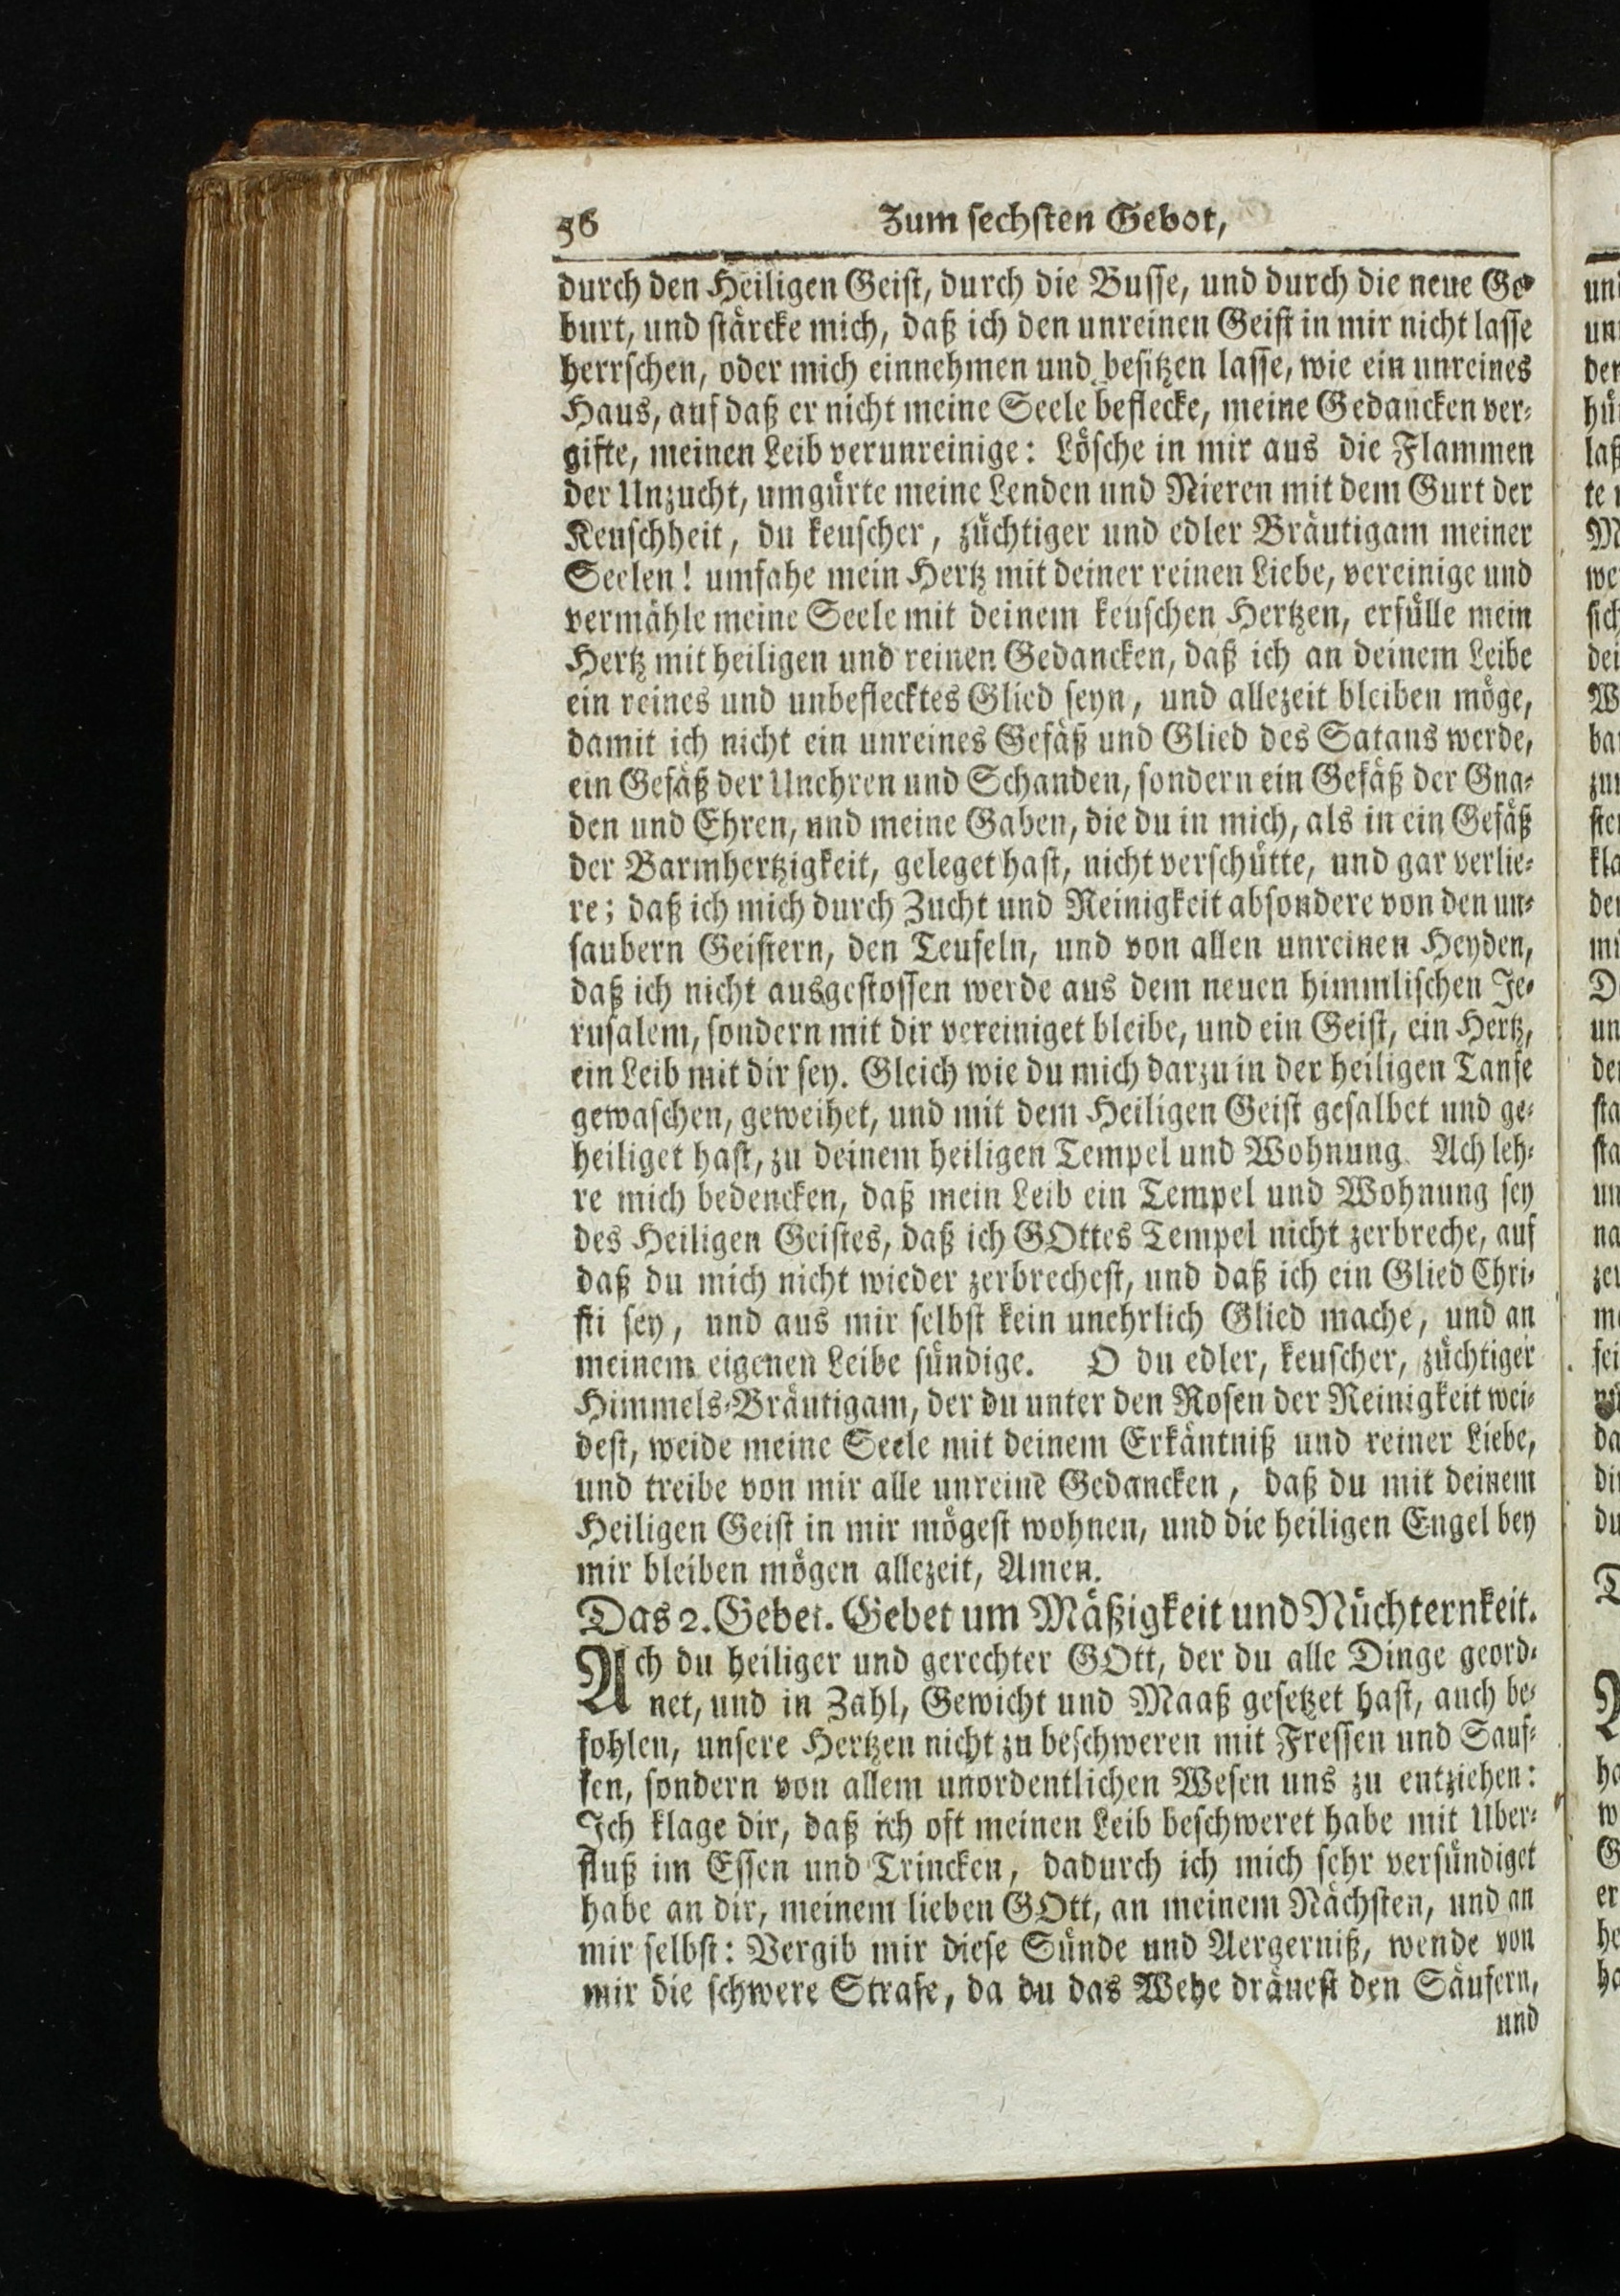 56 Zum sechsten Gebot,
durch den Heiligen Geist, durch die Busse, und durch die neue Ge-
burt, und stärcke mich, daß ich den unreinen Geist in mir nicht lasse
herrschen, oder mich einnehmen und besitzen lasse, wie ein unreines
Haus, auf daß er nicht meine Seele beflecke, meine Gedancken ver-
gifte, meinen Leib verunreinige: Lösche in mir aus die Flammen
der Unzucht, umgürte meine Lenden und Nieren mit dem Gurt der
Keuschheit, du keuscher, züchtiger und edler Bräutigam meiner
Seelen! umfahe mein Hertz mit deiner reinen Liebe, vereinige und
vermähle meine Seele mit deinem keuschen Hertzen, erfülle mein
Hertz mit heiligen und reinen Gedancken, daß ich an deinem Leibe
ein reines und unbeflecktes Glied seyn, und allezeit bleiben möge,
damit ich nicht ein unreines Gefäß und Glied des Satans werde,
ein Gefäß der Unehren und Schanden, sondern ein Gefäß der Gna-
den und Ehren, und meine Gaben, die du in mich, als in ein Gefäß
der Barmhertzigkeit, geleget hast, nicht verschütte, und gar verlie-
re; daß ich mich durch Zucht und Reinigkeit absondere von den un-
saubern Geistern, den Teufeln, und von allen unreinen Heyden,
daß ich nicht ausgestossen werde aus dem neuen himmlischen Je-
rusalem, sondern mit dir vereiniget bleibe, und ein Geist, ein Hertz,
ein Leib mit dir sey. Gleich wie du mich darzu in der heiligen Taufe
gewaschen, geweihet, und mit dem Heiligen Geist gesalbet und ge-
heiliget hast, zu deinem heiligen Tempel und Wohnung. Ach leh-
re mich bedencken, daß mein Leib ein Tempel und Wohnung sey
des Heiligen Geistes, daß ich GOttes Tempel nicht zerbreche, auf
daß du mich nicht wieder zerbrechest, und daß ich ein Glied Chri-
sti sey, und aus mir selbst kein unehrlich Glied mache, und an
meinem eigenen Leibe sündige. O du edler, keuscher, züchtiger
Himmels-Bräutigam, der du unter den Rosen der Reinigkeit wei-
dest, weide meine Seele mit deinem Erkäntniß und reiner Liebe,
und treibe von mir alle unreine Gedancken, daß du mit deinem
Heiligen Geist in mir mögest wohnen, und die heiligen Engel bey
mir bleiben mögen allezeit, Amen.
Das 2. Gebet. Gebet um Mäßigkeit und Nüchternkeit.
Ach du heiliger und gerechter GOtt, der du alle Dinge geord-
net, und in Zahl, Gewicht und Maaß gesetzet hast, auch be-
fohlen, unsere Hertzen nicht zu beschweren mit Fressen und Sauf-
fen, sondern von allem unordentlichen Wesen uns zu entziehen:
Ich klage dir, daß ich oft meinen Leib beschweret habe mit Uber-
fluß im Essen und Trincken, dadurch ich mich sehr versündiget
habe an dir, meinem lieben GOtt, an meinem Nächsten, und an
mir selbst: Vergib mir diese Sünde und Aergerniß, wende von
mir die schwere Strafe, da du das Wehe dräuest den Säufern,
und